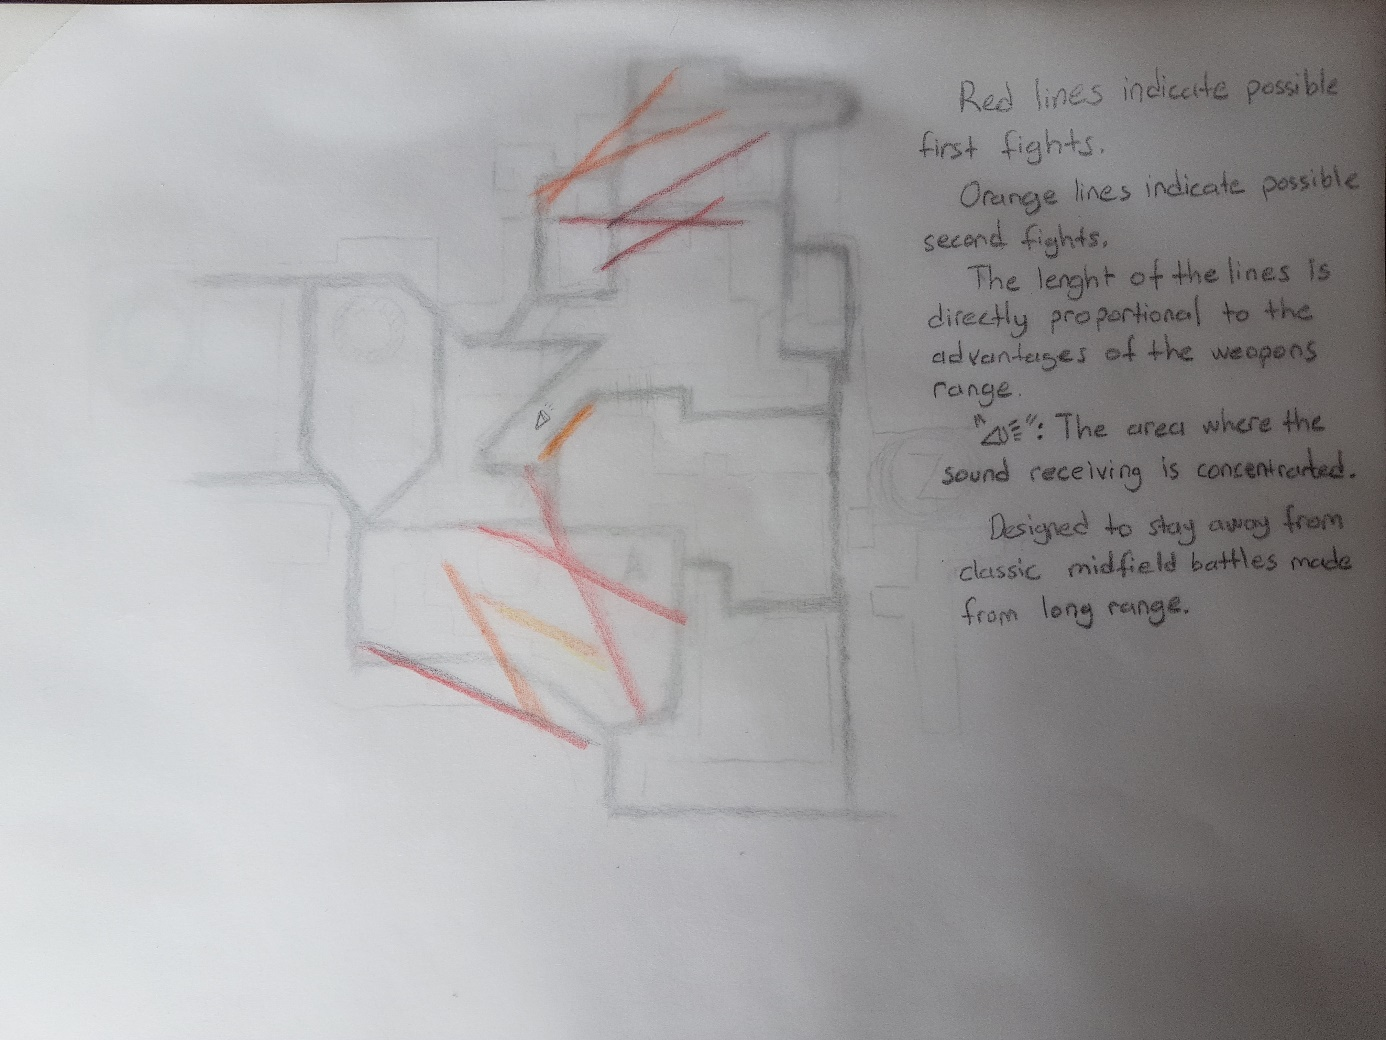 Red lines indicate possible
first fights.
Orange lines indicate possible
second fights.
The lenght of the lines is
directly proportional to the
advantages of the weapons
range.
" ": The area where the
sound receiving is concentrarted.
Designed to stay away from
classic midfield battles made
from long range.
A